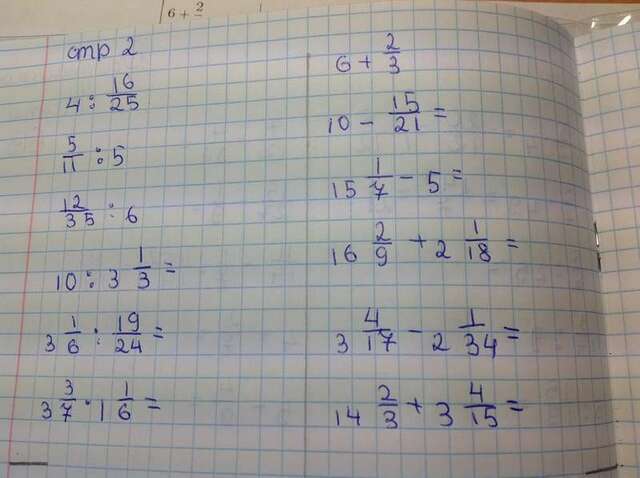 6 + 2
стр 2
4 : 16/25
5/11 : 5
12/35 : 6
10 : 3 1/3 =
3 1/6 : 19/24 =
3 3/7 · 1 1/6 =
6 + 2/3
10 - 15/21 =
15 1/7 - 5 =
16 2/9 + 2 1/18 =
3 4/17 - 2 1/34 =
14 2/3 + 3 4/15 =